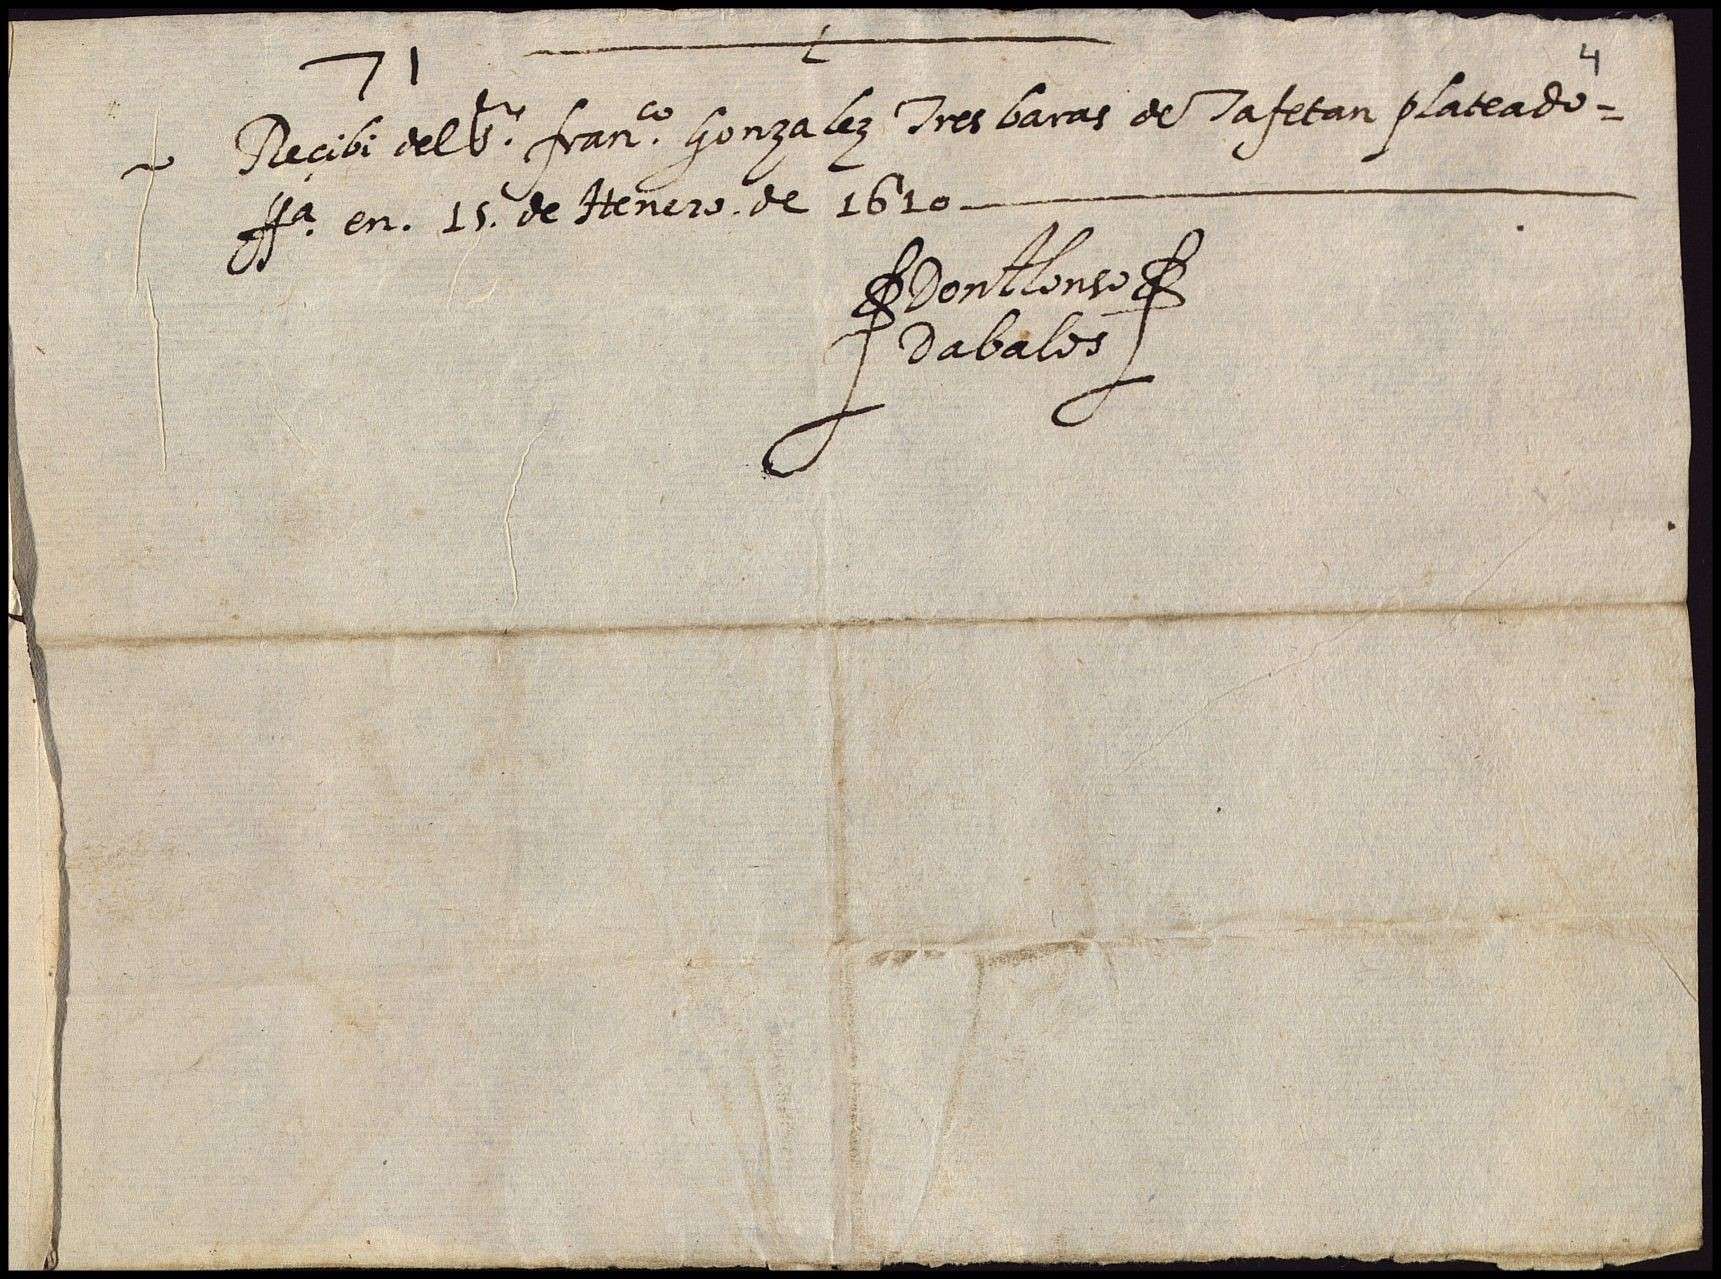 71
4
Reçibi del Sr. franco. Gonzalez Tres baras de Tafetan plateado =
ffa. en. 15. de Henero. de 1610
Don Alonso
Dabalos